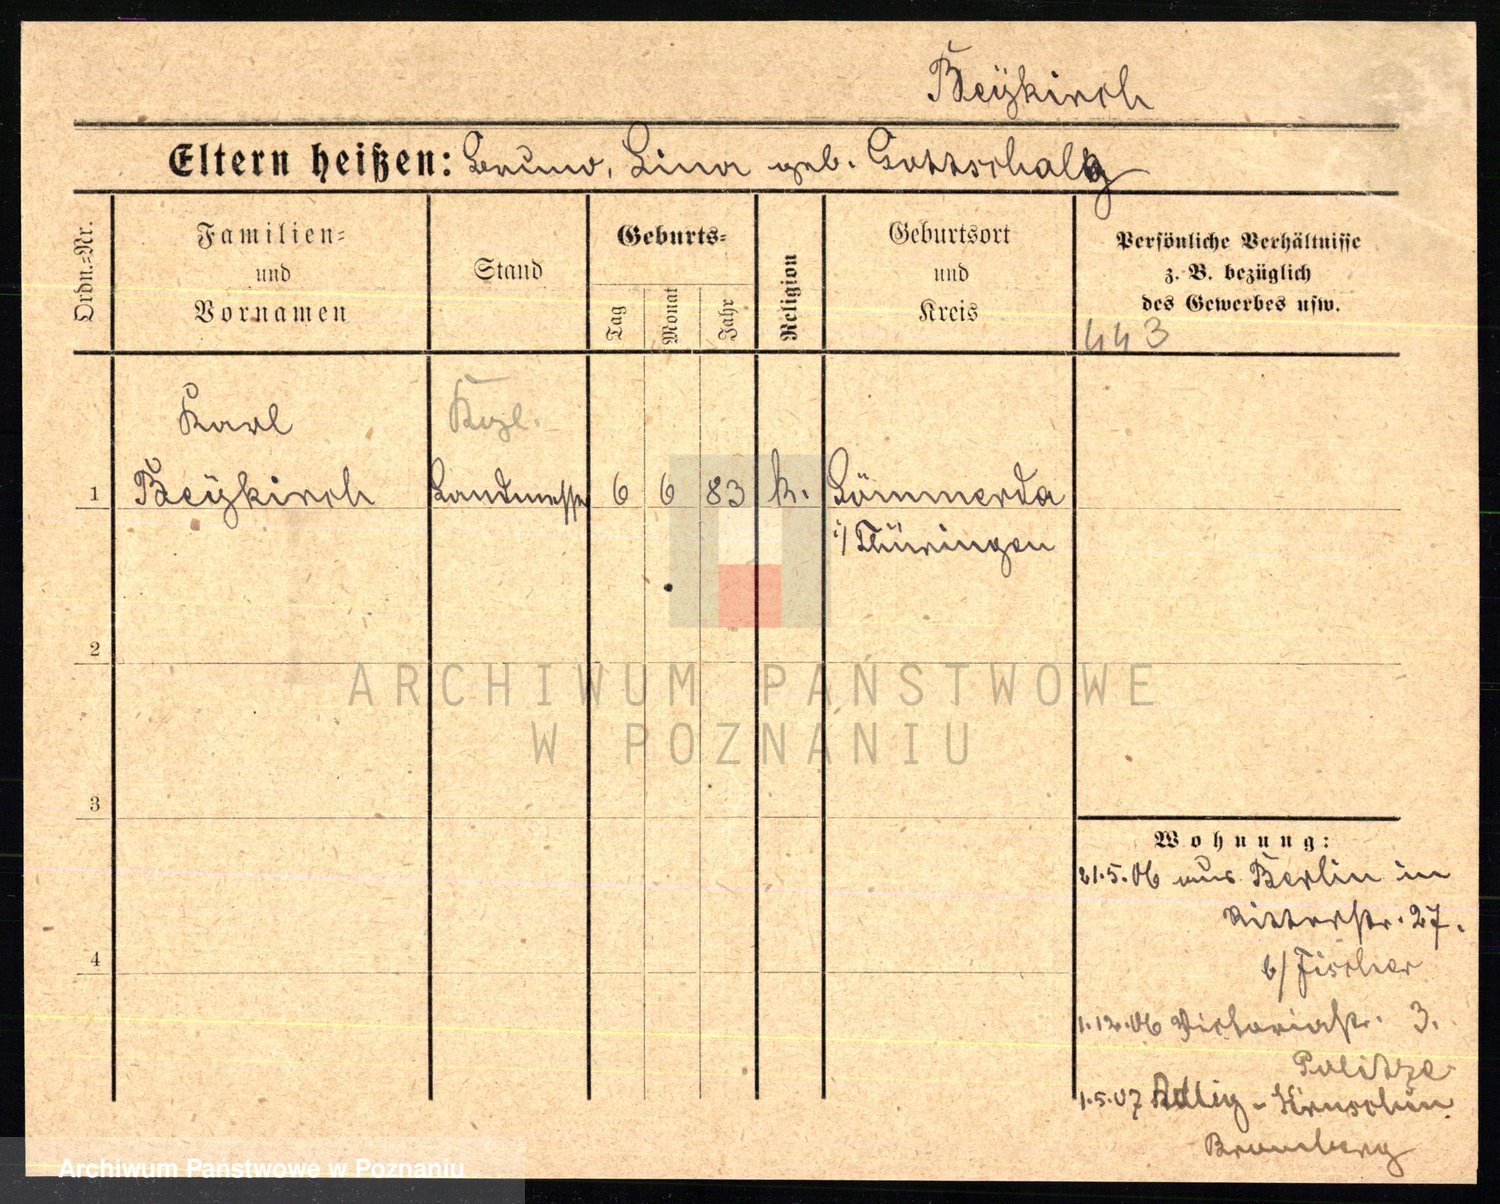 Beÿkirch
Eltern heißen: Bruno, Lina geb. Gottschalg
Ordn.=Nr.
Familien=
und
Vornamen
Stand
Geburts=
Tag
Monat
Jahr
Religion
Geburtsort
und
Kreis
Persönliche Verhältnisse
z. B. bezüglich
des Gewerbes usw.
443
Karl
Kgl.
1 Beÿkirch Landmesser 6 6 83 k. Sömmerda
i/ Thüringen
2
ARCHIWUM PAŃSTWOWE
W POZNANIU
3
Wohnung:
21.5.06 aus Berlin in
Ritterstr. 27.
b/ Fischer
4
1.12.06 Victoriastr. 3.
1.5.07 Adlig-Kruschin
Bromberg
Archiwum Państwowe w Poznaniu